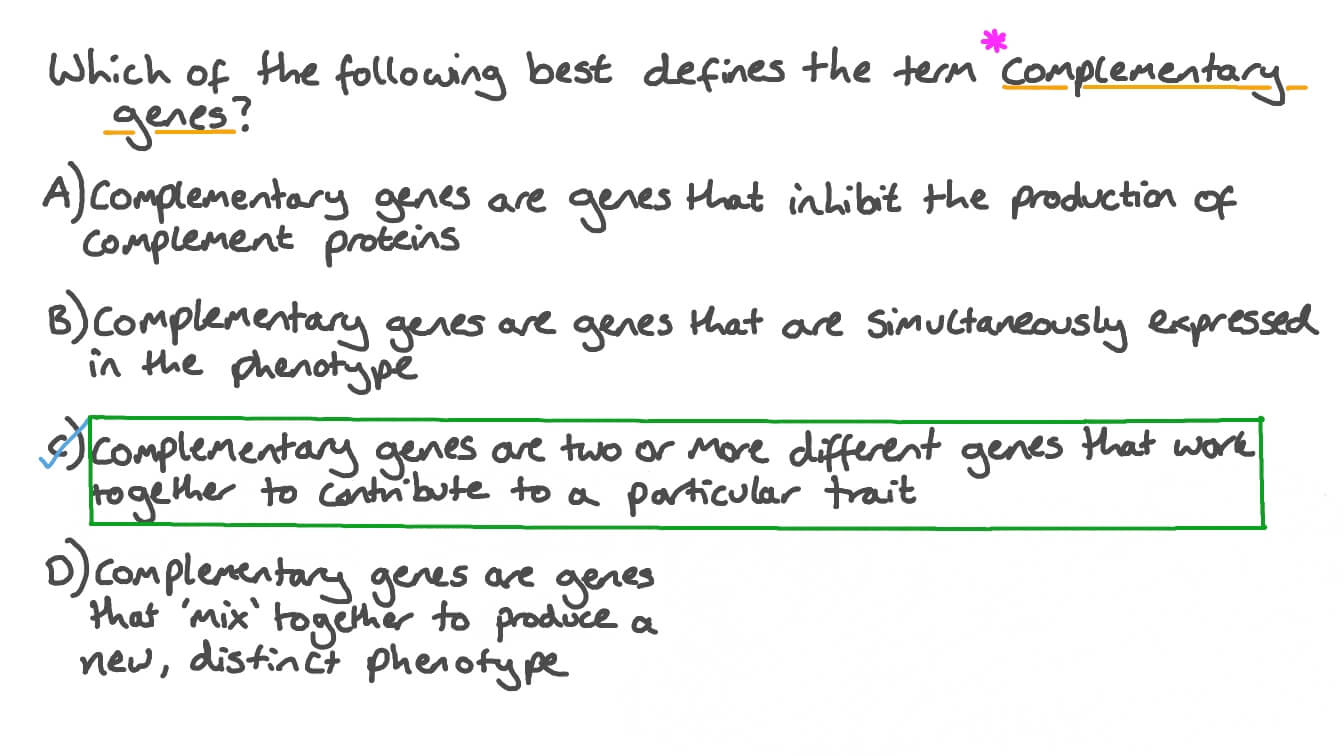 Which of the following best defines the term *complementary
genes?
A) Complementary genes are genes that inhibit the production of
complement proteins
B) Complementary genes are genes that are simultaneously expressed
in the phenotype
C) Complementary genes are two or more different genes that work
together to contribute to a particular trait
D) Complementary genes are genes
that 'mix' together to produce a
new, distinct phenotype